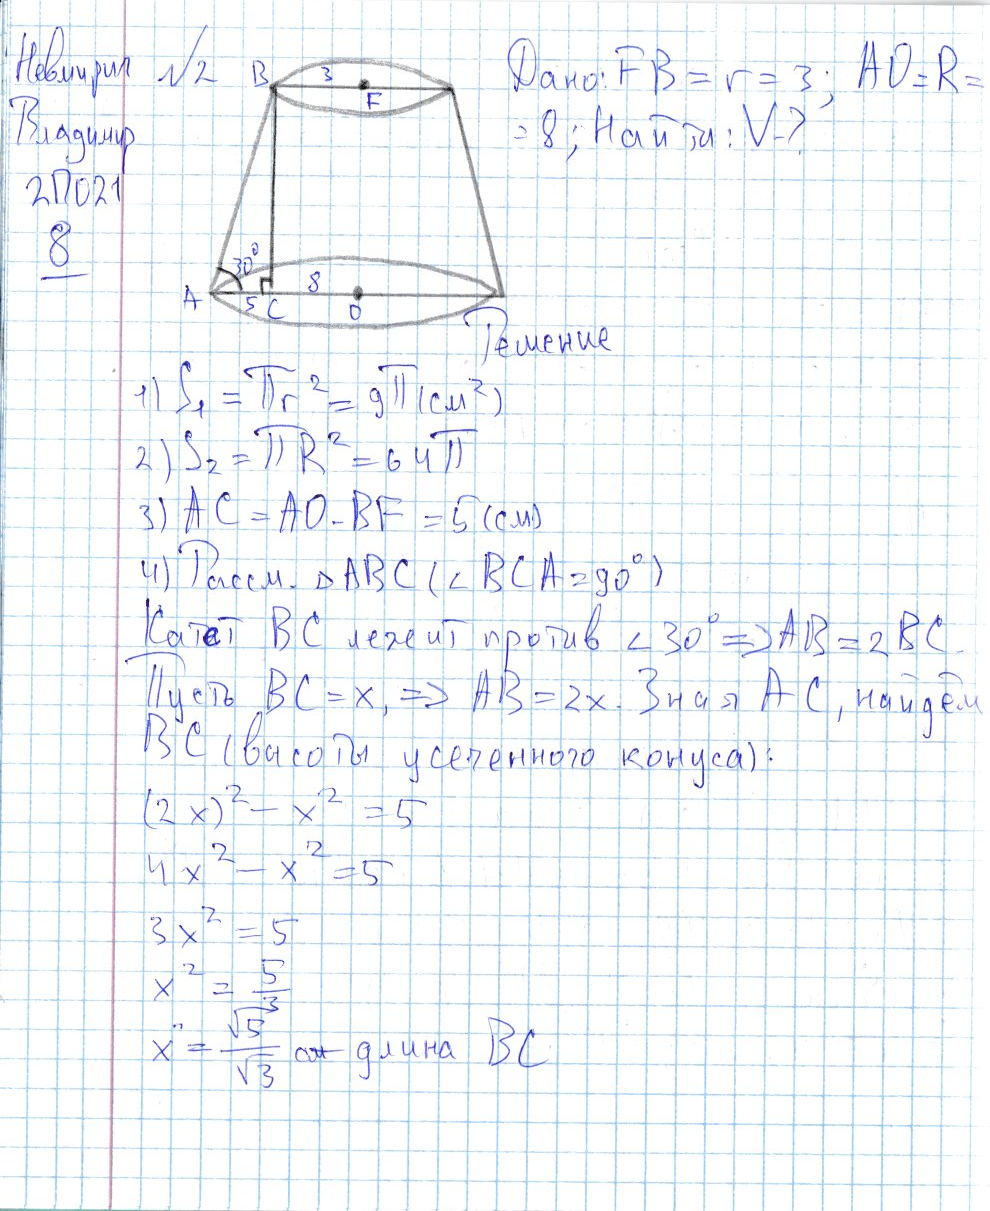 Невмирич
Владимир
2П021
8
№2
B 3 F
30°
A 5 C 8 O
Дано: FB = r = 3; AO = R =
= 8; Найти: V-?
Решение
1) S₁ = Пr² = 9П (см²)
2) S₂ = ПR² = 64П
3) AC = AO - BF = 5 (см)
4) Рассм. △ABC (∠BCA = 90°)
Катет BC лежит против ∠30° => AB = 2BC.
Пусть BC = x, => AB = 2x. Зная AC, найдём
BC (высоты усеченного конуса):
(2x)² - x² = 5
4x² - x² = 5
3x² = 5
x² = 5/3
x = √5/√3 длина BC